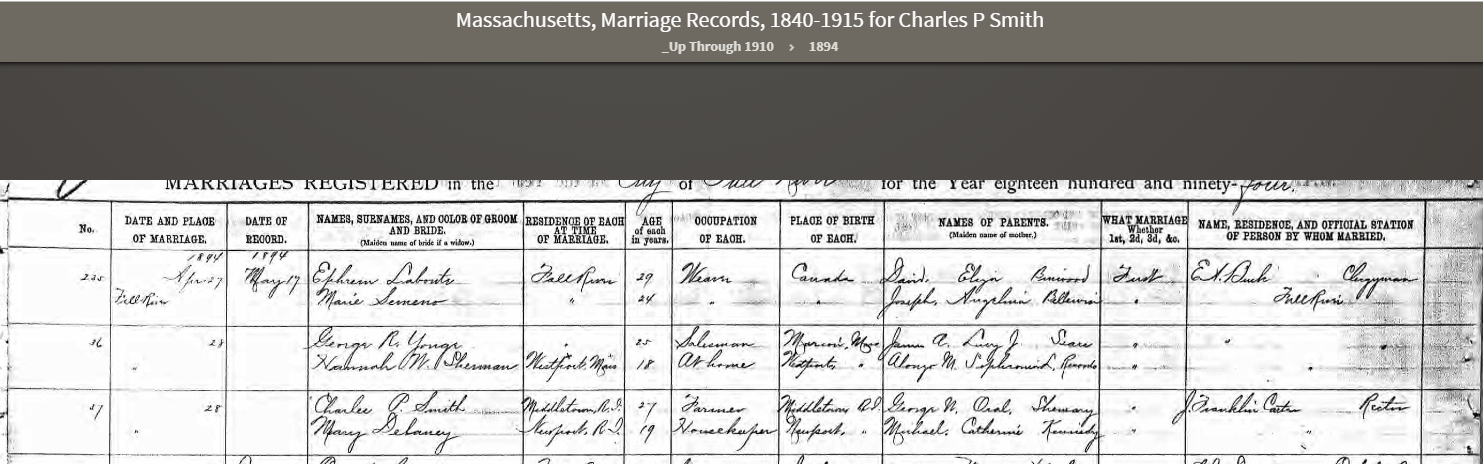 Massachusetts, Marriage Records, 1840-1915 for Charles P Smith
_Up Through 1910 › 1894
MARRIAGES REGISTERED in the City of Fall River for the Year eighteen hundred and ninety-four.
No. DATE AND PLACE OF MARRIAGE. DATE OF RECORD. NAMES, SURNAMES, AND COLOR OF GROOM AND BRIDE. (Maiden name of bride if a widow.) RESIDENCE OF EACH AT TIME OF MARRIAGE. AGE of each in years. OCCUPATION OF EACH. PLACE OF BIRTH OF EACH. NAMES OF PARENTS. (Maiden name of mother.) WHAT MARRIAGE Whether 1st, 2d, 3d, &c. NAME, RESIDENCE, AND OFFICIAL STATION OF PERSON BY WHOM MARRIED.
1894 1894
235 Apr. 27 May 17 Ephrem Fall River 29 Canada David, Eliza First Clergyman
Fall River Marie " 24 " " Joseph, Angelina " Fall River
36 28 George R. " 25 Salesman James A. Lucy J. Sears " " "
" Hannah W. Sherman Westport, Mass 18 At home Westport, " Alonzo M. " "
37 28 Charles P. Smith Middletown, R.I. 27 Farmer Middletown, R.I. George N. " J. Franklin Carter Rector
" Mary Delaney Newport, R.I. 19 Housekeeper Newport, " Michael, Catherine Kennedy " "